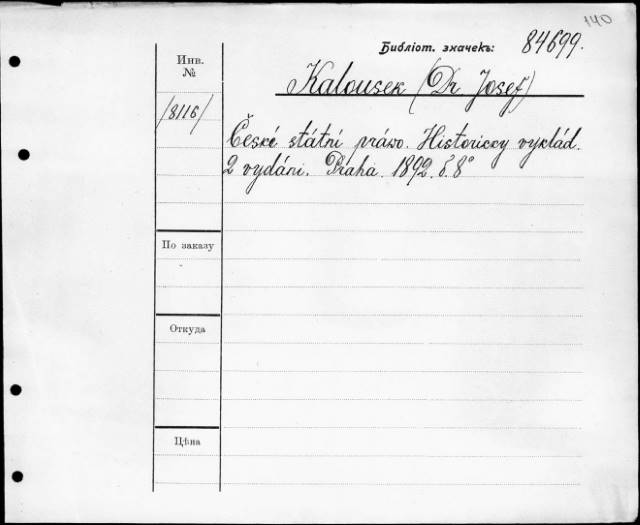 140
Библіот. значекъ: 84699.
Инв.
№
Kalousek (Dr. Josef)
/8116/
České státní právo. Historický výklád.
2 vydáni. Praha. 1892. č. 8°
По заказу
Откуда
Цѣна